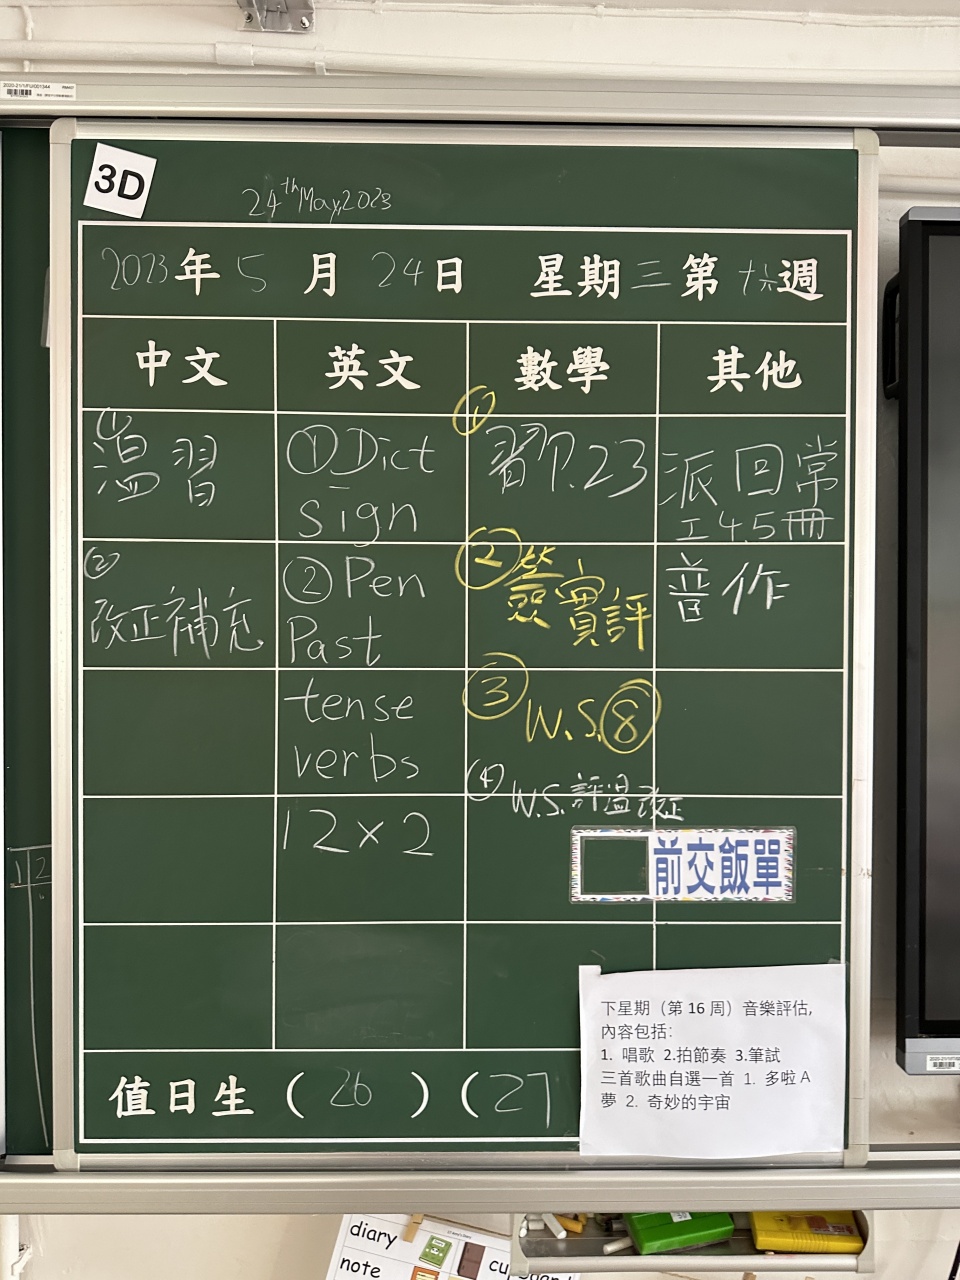 3D
24th May, 2023
2023年 5 月 24日 星期三 第十六週
中文 英文 數學 其他
① 溫習
② 改正補充
① Dict
sign
② Pen
Past
tense
verbs
12×2
①
習P.23
②
實評
③ W.S.⑧
④ W.S.評溫改正
派回常
工4.5冊
音作
前交飯單
下星期（第 16 周）音樂評估,
內容包括:
1. 唱歌 2.拍節奏 3.筆試
三首歌曲自選一首 1. 多啦 A
夢 2. 奇妙的宇宙
值日生（26）（27
diary
note